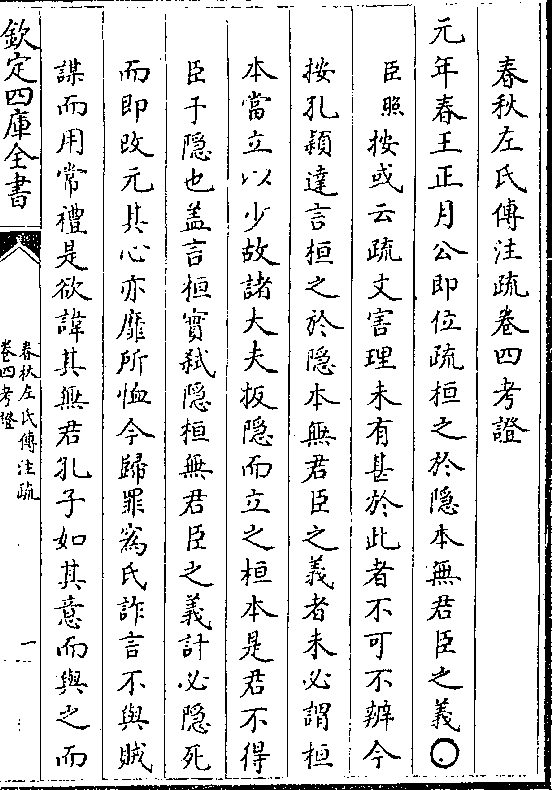 春秋左氏傳注疏卷四考證
元年春王正月公即位疏桓之於隱本無君臣之義○
臣照按或云疏文害理未有甚於此者不可不辨今
按孔穎達言桓之於隱本無君臣之義者未必謂桓
本當立以少故諸大夫扳隱而立之桓本是君不得
臣于隱也盖言桓實弑隱桓無君臣之義計必隱死
而即改元其心亦靡所恤今歸罪寪氏詐言不與賊
謀而用常禮是欲諱其無君孔子如其意而與之而
欽定四庫全書
春秋左氏傳注疏
卷四考證
一